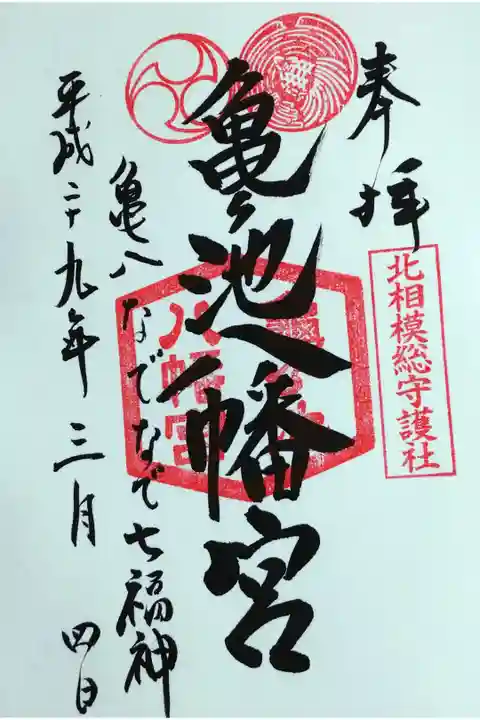 奉拝
北相模総守護社
亀ヶ池八幡宮
亀八なでなで七福神
平成二十九年三月四日